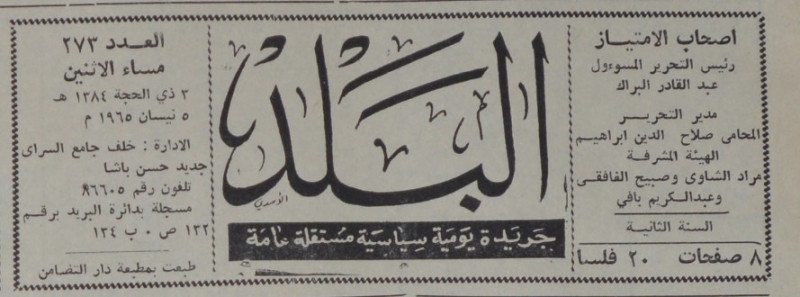 اصحاب الامتياز
رئيس التحرير المسؤول
عبد القادر البراك
مدير التحرير
المحامى صلاح الدين ابراهيم
الهيئة المشرفة
مراد الشاوى وصبيح الغافقى
وعبدالكريم بافي
السنة الثانية
٨ صفحات ٢٠ فلسا
البلد
الأسدي
جريدة يومية سياسية مستقلة عامة
العدد ٢٧٣
مساء الاثنين
٣ ذي الحجة ١٣٨٤ هـ
٥ نيسان ١٩٦٥ م
الادارة : خلف جامع السراى
جديد حسن باشا
تلفون رقم ٨٦٦٠٥
مسجلة بدائرة البريد برقم
١٣٢ ص ٠ ب ١٣٤
طبعت بمطبعة دار التضامن